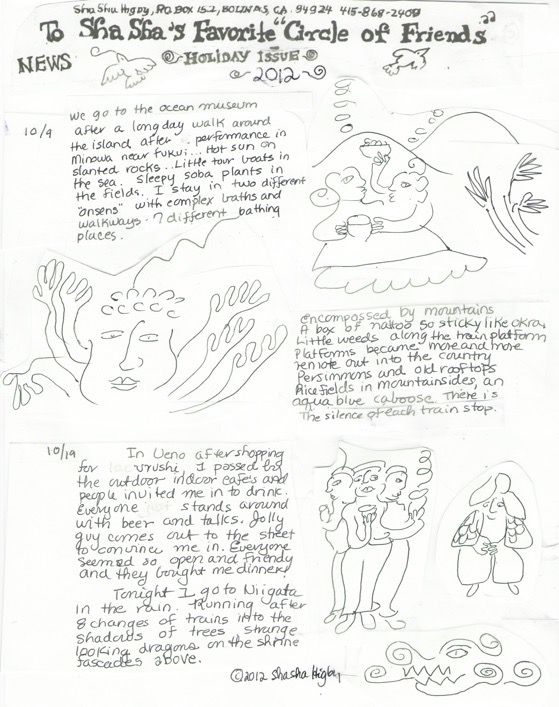 Sha Sha Higby, P.O. BOX 152, BOLINAS, CA. 94924 415-868-2409
To Sha Sha's Favorite "Circle of Friends"
NEWS
HOLIDAY ISSUE
2012
10/9
we go to the ocean museum
after a long day walk around
the island after .. performance in
Minowa near fukui... Hot sun on
slanted rocks.. Little tour boats in
the sea. Sleepy soba plants in
the fields. I stay in two different
"onsens" with complex baths and
walkways. 7 different bathing
places.
encompossed by mountains
A box of nattoo so sticky like okra,
Little weeds along the train platform
Platforms became more and more
remote out into the country
Persimmons and old rooftops
Rice fields in mountainsides, an
aqua blue caboose There is
The silence of each train stop.
10/19
In Ueno after shopping
for urushi, I passed by
the outdoor indoor cafes and
people invited me in to drink.
Everyone stands around
with beer and talks. Jolly
guy comes out to the street
to convince me in. Everyone
seemed so open and friendly
and they bought me dinner!
Tonight I go to Niigata
in the rain. Running after
8 changes of trains into the
shadows of trees strange
looking dragons on the shrine
fascades above.
©2012 Sha Sha Higby